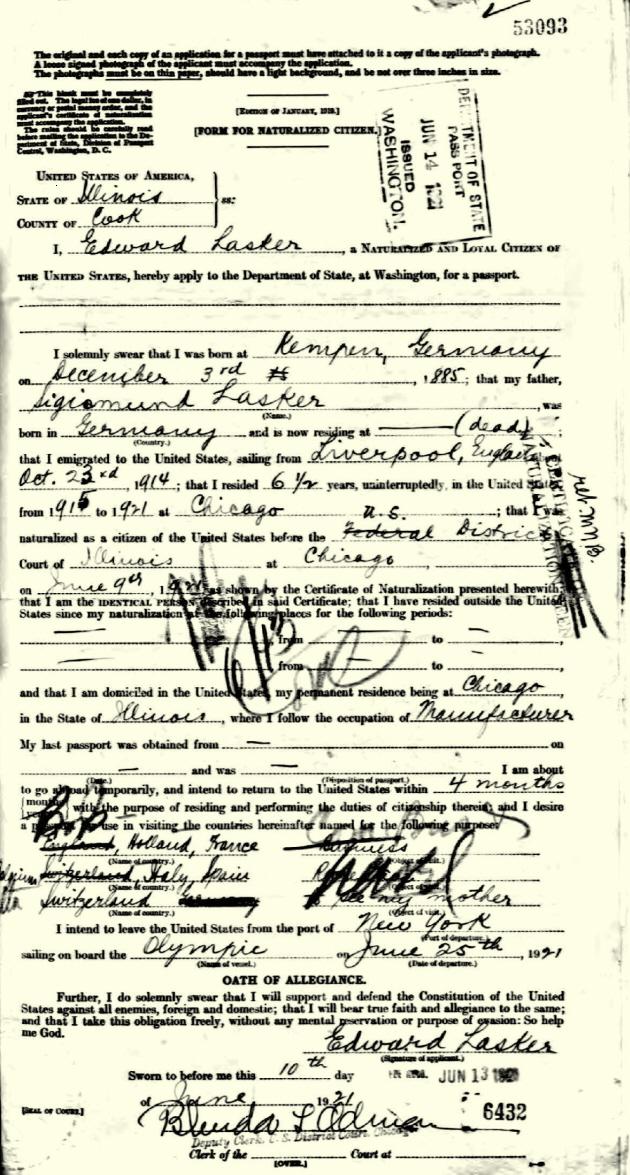 53093
The original and each copy of an application for a passport must have attached to it a copy of the applicant's photograph.
A loose signed photograph of the applicant must accompany the application.
The photographs must be on thin paper, should have a light background, and be not over three inches in size.
This blank must be completely
filled out. The legal fee of one dollar, in
currency or postal money order, and the
applicant's certificate of naturalization
must accompany the application.
The rules should be carefully read
before mailing the application to the De-
partment of State, Division of Passport
Control, Washington, D. C.
[EDITION OF JANUARY, 1919.]
[FORM FOR NATURALIZED CITIZEN.]
DEPARTMENT OF STATE
PASSPORT
JUN 14 1921
ISSUED
WASHINGTON.
UNITED STATES OF AMERICA,
STATE OF Illinois
ss:
COUNTY OF Cook
I, Edward Lasker, a NATURALIZED AND LOYAL CITIZEN OF
THE UNITED STATES, hereby apply to the Department of State, at Washington, for a passport.
I solemnly swear that I was born at Kempen, Germany
on December 3rd, 1885; that my father,
Sigismund Lasker, was
(Name.)
born in Germany and is now residing at (dead);
(Country.)
that I emigrated to the United States, sailing from Liverpool, England
Oct. 23rd, 1914; that I resided 6 1/2 years, uninterruptedly, in the United States
from 1915 to 1921 at Chicago U.S.; that I was
naturalized as a citizen of the United States before the Federal District
Court of Illinois at Chicago,
on June 9th, as shown by the Certificate of Naturalization presented herewith;
that I am the IDENTICAL PERSON described in said Certificate; that I have resided outside the United
States since my naturalization at the following places for the following periods:
, from — to —,
, from — to —,
and that I am domiciled in the United States, my permanent residence being at Chicago,
in the State of Illinois, where I follow the occupation of Manufacturer
My last passport was obtained from — on
— and was — I am about
(Date.) (Disposition of passport.)
to go abroad temporarily, and intend to return to the United States within 4 months
(months
with the purpose of residing and performing the duties of citizenship therein; and I desire
a passport for use in visiting the countries hereinafter named for the following purpose:
England, Holland, France business
(Name of country.) (Object of visit.)
Switzerland, Italy, Spain
(Name of country.) (Object of visit.)
Switzerland Germany to see my mother
(Name of country.) (Object of visit.)
I intend to leave the United States from the port of New York
(Port of departure.)
sailing on board the Olympic on June 25th, 1921
(Name of vessel.) (Date of departure.)
OATH OF ALLEGIANCE.
Further, I do solemnly swear that I will support and defend the Constitution of the United
States against all enemies, foreign and domestic; that I will bear true faith and allegiance to the same;
and that I take this obligation freely, without any mental reservation or purpose of evasion: So help
me God.
Edward Lasker
(Signature of applicant.)
Sworn to before me this 10th day
JUN 13 1921
of June 1921
[SEAL OF COURT.]
6432
Deputy Clerk, U. S. District Court, Chicago
Clerk of the Court at
[OVER.]